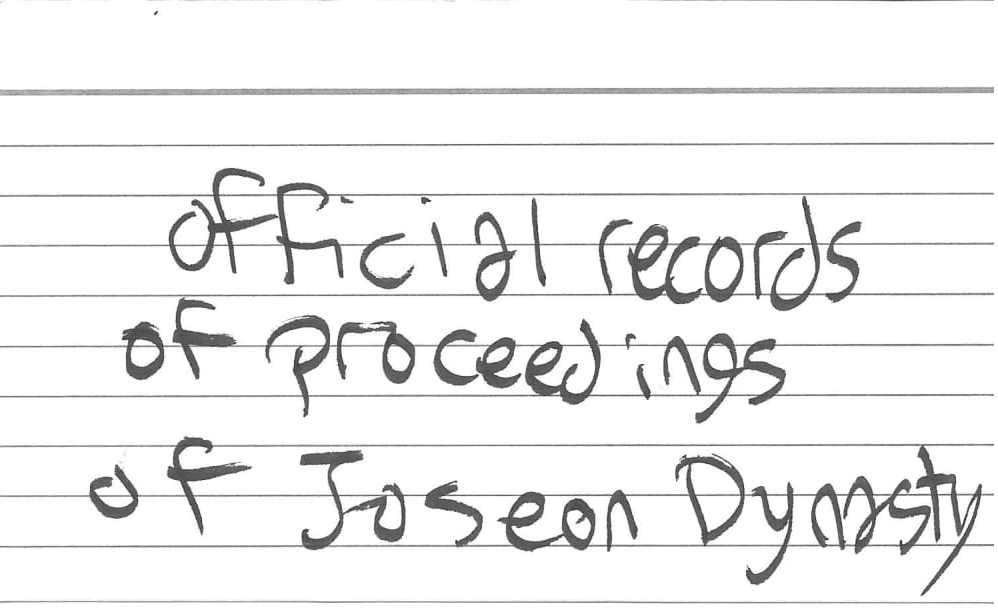 official records
of proceedings
of Joseon Dynasty